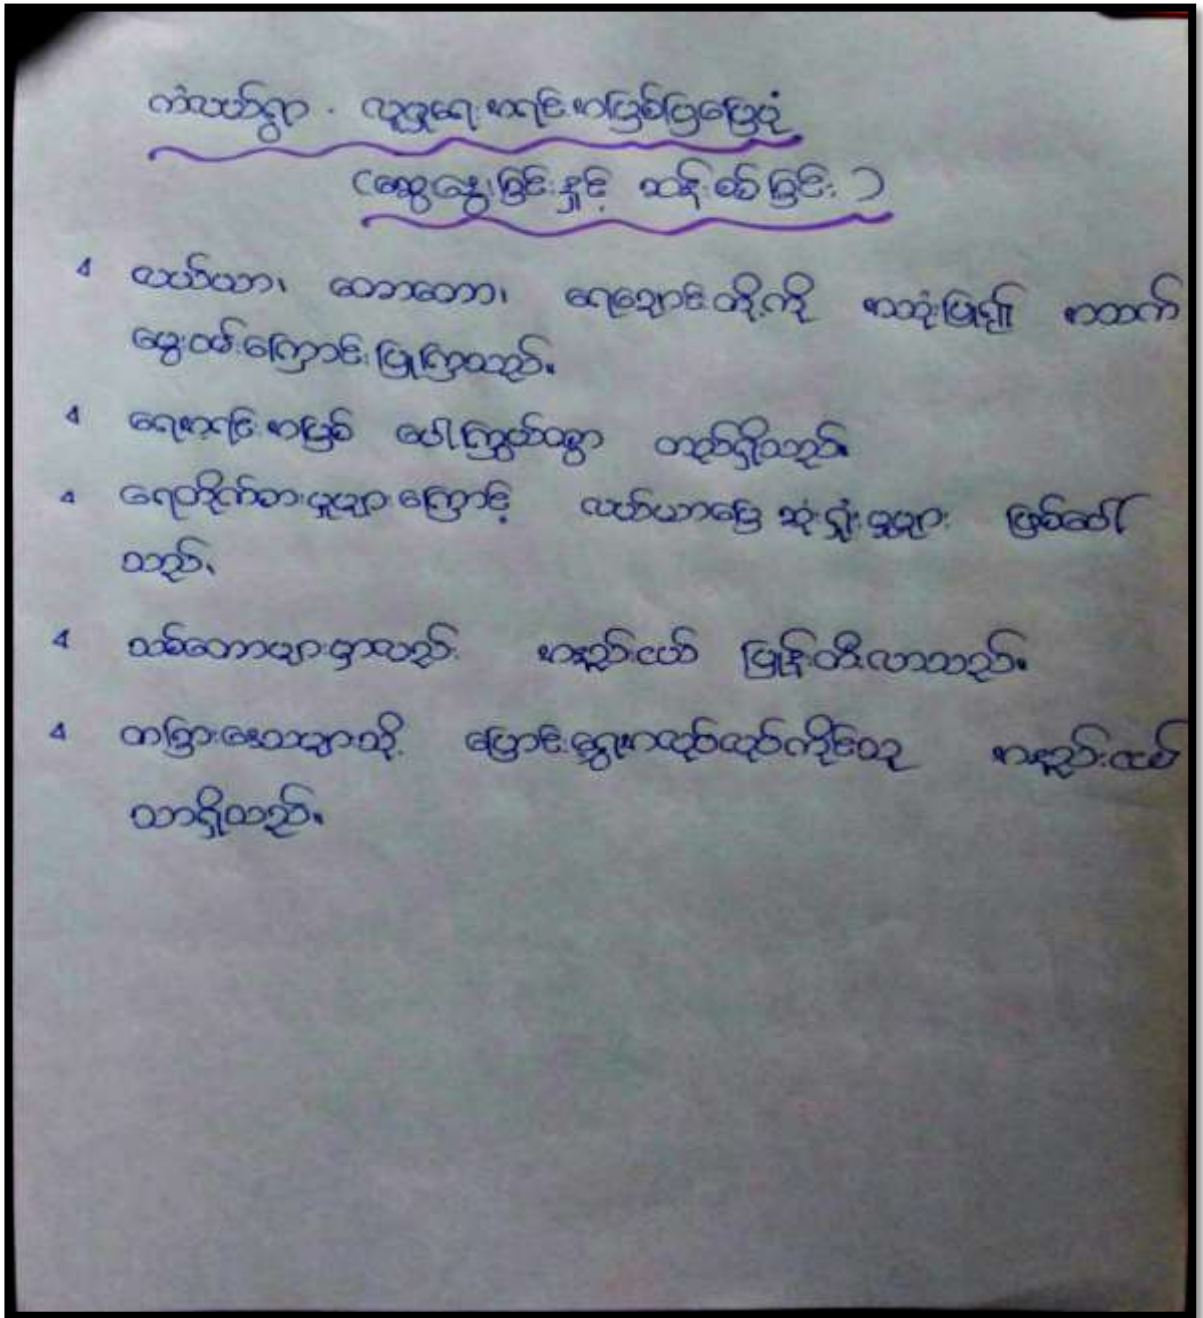 ကံလယ်ရွာ - လူမှုရေးအရင်းအမြစ်ပြမြေပုံ
(ဆွေးနွေးခြင်းနှင့် ဆန်းစစ်ခြင်း)
လယ်ယာ၊ တောတော၊ ရေချောင်းတို့ကို အသုံးပြု၍ အသက်
မွေးဝမ်းကြောင်းပြုကြသည်။
ရေအရင်းအမြစ် ပေါကြွယ်ဝစွာ တည်ရှိသည်။
ရေတိုက်စားမှုများကြောင့် လယ်ယာမြေ ဆုံးရှုံးမှုများ ဖြစ်ပေါ်
သည်။
သစ်တောများမှာလည်း အနည်းငယ် ပြုန်းတီးလာသည်။
တခြားဒေသများသို့ ပြောင်းရွှေ့အလုပ်လုပ်ကိုင်သူ အနည်းငယ်
သာရှိသည်။